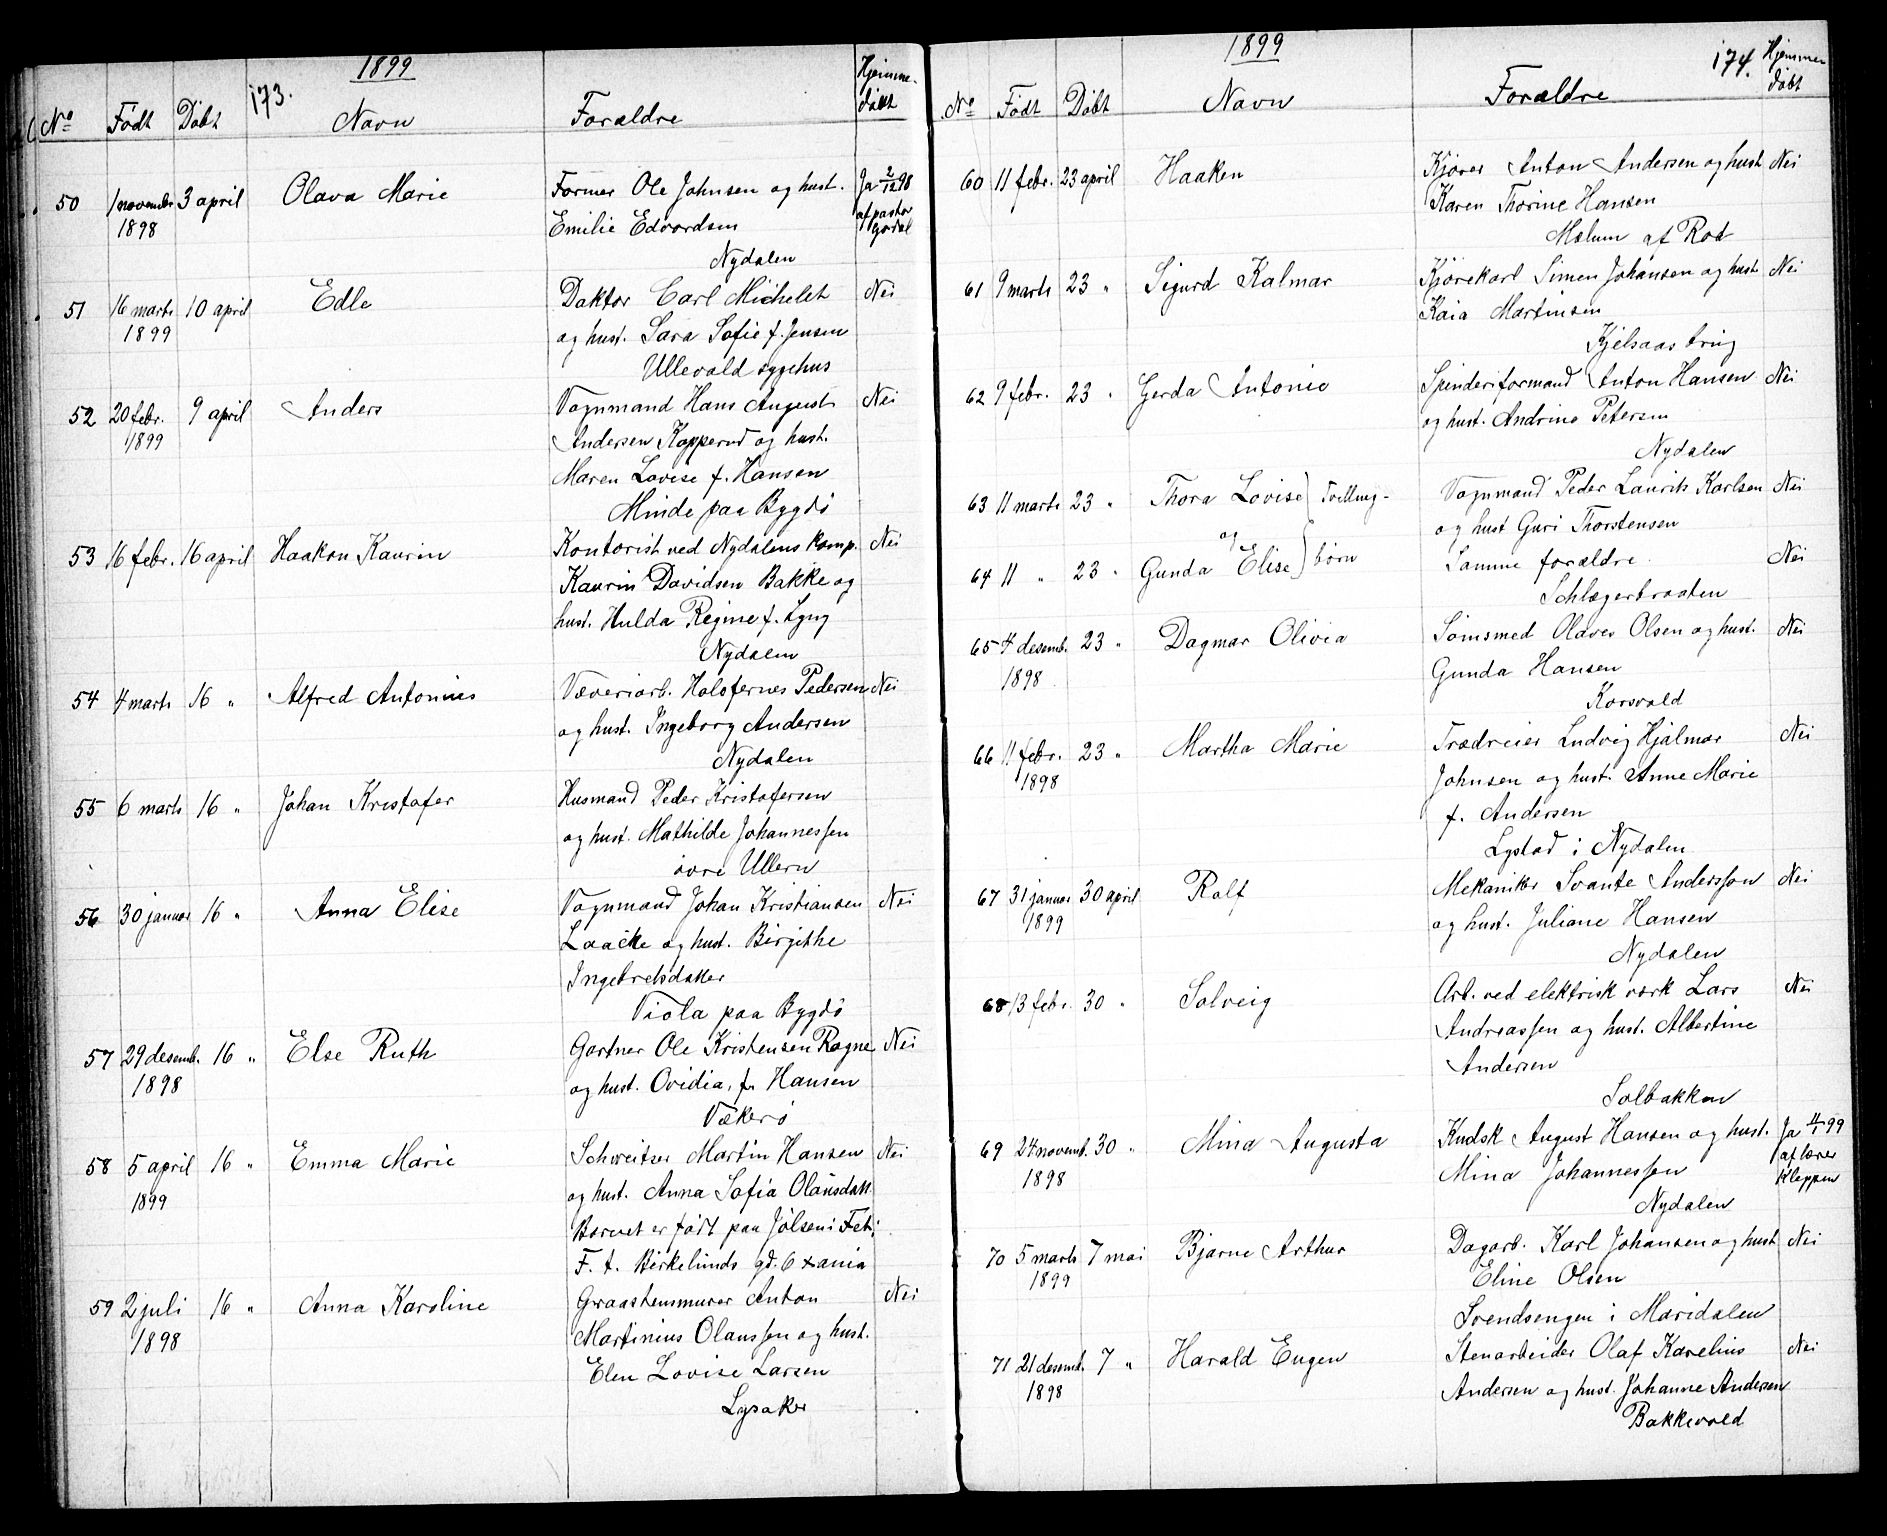 1899
173.
Hjemme-
døbt
No Født Døbt Navn Forældre
50 1 novembr 3 april Olava Marie Former Ole Johnsen og hust. Ja 2/12 98
1898 Emilie Edvardsen af pastor
Nydalen
51 16 marts 10 april Edle Doktor Carl Michelet Nei
1899 og hust. Sara Sofie f. Jensen
Ullevold sygehus
52 20 febr. 9 april Anders Vognmand Hans August Nei
1899 Andersen Kopperud og hust.
Maren Lovise f. Hansen
Minde paa Bygdö
53 16 febr. 16 april Haakon Kaurin Kontorist ved Nydalens komp. Nei
Kaurin Davidsen Bakke og
hust. Hulda Regine f. Lyng
Nydalen
54 4 marts 16 " Alfred Antonius Væveriarb. Holofernes Pedersen Nei
og hust. Ingeborg Andersen
Nydalen
55 6 marts 16 " Johan Kristofer Husmand Peder Kristofersen
og hust. Mathilde Johannessen
övre Ullern
56 30 januar 16 " Anna Elise Vognmand Johan Kristiansen Nei
Laacke og hust. Birgithe
Ingebretsdatter
Viola paa Bygdö
57 29 desemb. 16 " Else Ruth Gartner Ole Kristensen Rogne Nei
1898 og hust. Ovidia, f. Hansen
Vækerö
58 5 april 16 " Emma Marie Schweitser Martin Hansen Nei
1899 og hust. Anna Sofia Olausdatt.
Barnet er født paa Jölsen i Fet;
F. t. Birkelunds gd. 6 Xania
59 2 juli 16 " Anna Karoline Graastensmurer Anton Nei
1898 Martinius Olaussen og hust.
Elen Lovise Larsen
Lysaker
1899
174.
Hjemme
døbt
No Født Døbt Navn Forældre
60 11 febr. 23 april Haaken Kjörer Anton Andersen og hust Nei
Karen Thorine Hansen
Mælum af Rod
61 9 marts 23 " Sigurd Kalmar Kjörekarl Simen Johansen og hust Nei
Kaia Martinsen
Kjelsaas brug
62 9 febr. 23 " Gerda Antonie Spinderiformand Anton Hansen Nei
og hust. Andrine Petersen
Nydalen
63 11 marts 23 " Thora Lovise } Tvilling- Vognmand Peder Laurits Karlsen Nei
og og hust Guri Thorstensen
64 11 " 23 " Gunda Elise } børn Samme forældre. Nei
Schlægerbraaten
65 4 desemb. 23 " Dagmar Olivia Sömsmed Olaves Olsen og hust. Nei
1898 Gunda Hansen
Korsvold
66 11 febr. 23 " Martha Marie Trædreier Ludvig Hjalmar Nei
1898 Johnsen og hust. Anne Marie
f. Andersen
Lystad i Nydalen
67 31 januar 30 april Rolf Mekaniker Svante Andersson Nei
1899 og hust. Juliane Hansen
Nydalen
68 13 febr. 30 " Solveig Arb. ved elektrisk værk Lars Nei
Andreassen og hust. Albertine
Andersen
Solbakken
69 24 novemb. 30 " Mina Augusta Kudsk August Hansen og hust. Ja 4/1 99
1898 Mina Johannessen af lærer
Kleppen
Nydalen
70 5 marts 7 mai Bjarne Arthur Dagarb. Karl Johansen og hust Nei
1899 Eline Olsen
Svendsengen i Maridalen
71 21 desemb. 7 " Harald Eugen Stenarbeider Olaf Karelius Nei
1898 Andersen og hust. Johanne Andersen
Bakkevold